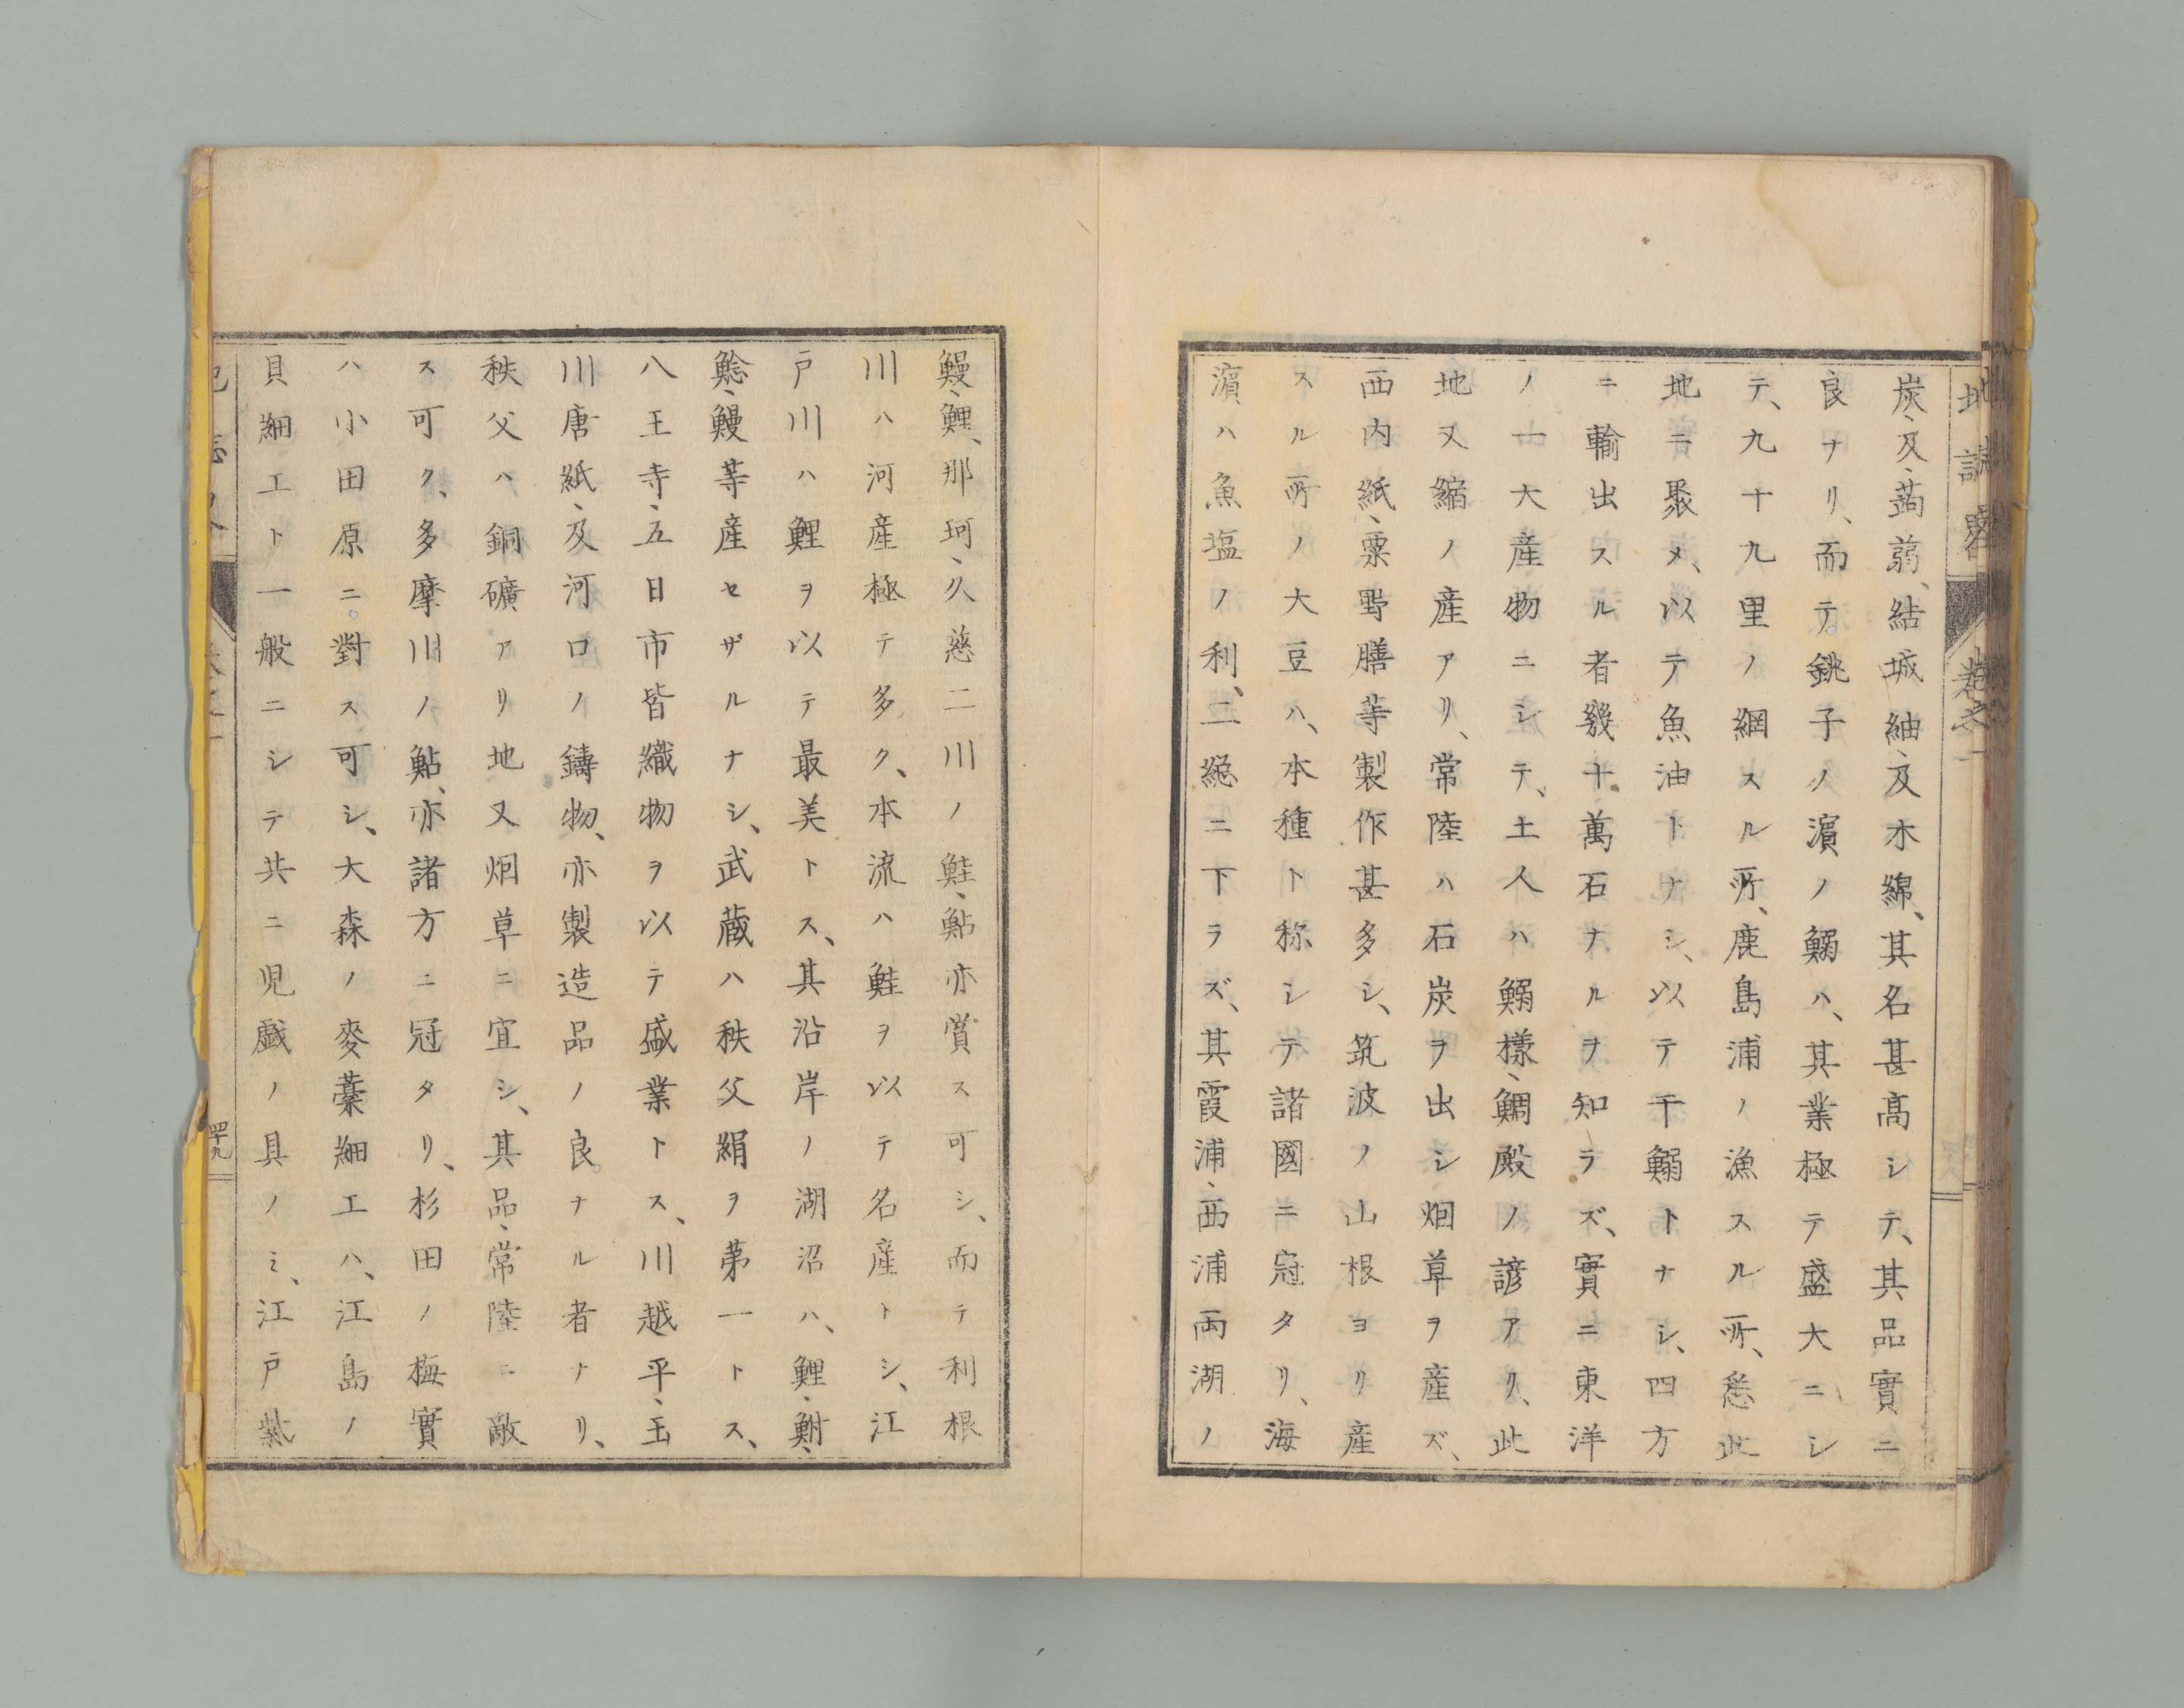 地誌畧 卷之一
炭、及、蒟蒻、結城紬、及木綿、其名甚高シテ、其品實ニ
良ナリ、而テ銚子ノ濵ノ鰯ハ、其業極テ盛大ニシ
テ、九十九里ノ綱スル所、鹿島浦ノ漁スル所、悉此
地ニ聚メ、以テ魚油トナシ、以テ干鰯トナシ、四方
ニ輸出スル者幾十萬石ナルヲ知ラズ、實ニ東洋
ノ一大産物ニシテ、土人ハ鰯樣、鯛殿ノ諺アリ、此
地又縮ノ産アリ、常陸ハ石炭ヲ出シ烟草ヲ産ズ、
西内紙、粟野膳等製作甚多シ、筑波ノ山根ヨリ産
スル所ノ大豆ハ、本種ト称シテ諸國ニ冠タリ、海
濵ハ魚塩ノ利、二総ニ下ラズ、其霞浦、西浦両湖ノ
鰻、鯉、那珂、久慈二川ノ鮭、鮎亦賞ス可シ、而テ利根
川ハ河産極テ多ク、本流ハ鮭ヲ以テ名産トシ、江
戸川ハ鯉ヲ以テ最美トス、其沿岸ノ湖沼ハ、鯉、鮒、
鯰、鰻等産セザルナシ、武蔵ハ秩父絹ヲ第一トス、
八王寺、五日市皆織物ヲ以テ盛業トス、川越平、玉
川唐紙、及河口ノ鑄物、亦製造品ノ良ナル者ナリ、
秩父ハ銅礦アリ地又烟草ニ宜シ、其品、常陸ニ敵
ス可ク、多摩川ノ鮎、亦諸方ニ冠タリ、杉田ノ梅實
ハ小田原ニ對ス可シ、大森ノ麥藁細工ハ、江島ノ
貝細工ト一般ニシテ共ニ児戯ノ具ノミ、江戸紫
四十九